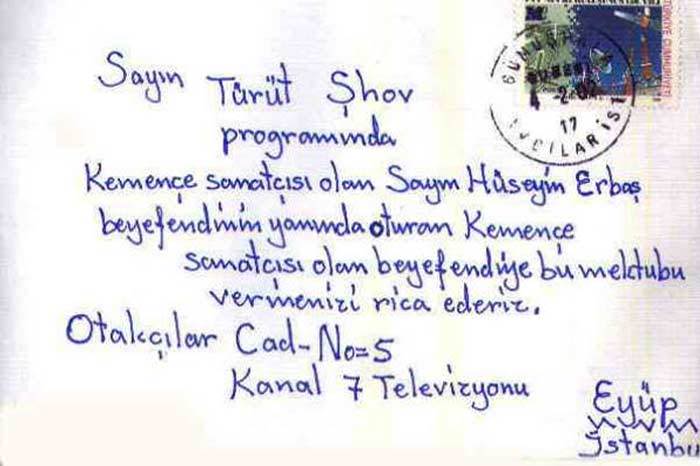 TÜRKİYE CUMHURİYETİ
4 -2.02
17
AVCILAR İST
Sayın Türüt Şhov
programında
Kemençe sanatçısı olan Sayın Hüseyin Erbaş
beyefendinin yanında oturan Kemençe
sanatcısı olan beyefendiye bu mektubu
vermenizi rica ederiz.
Otakçılar Cad-No=5
Kanal 7 Televizyonu
Eyüp
İstanbul